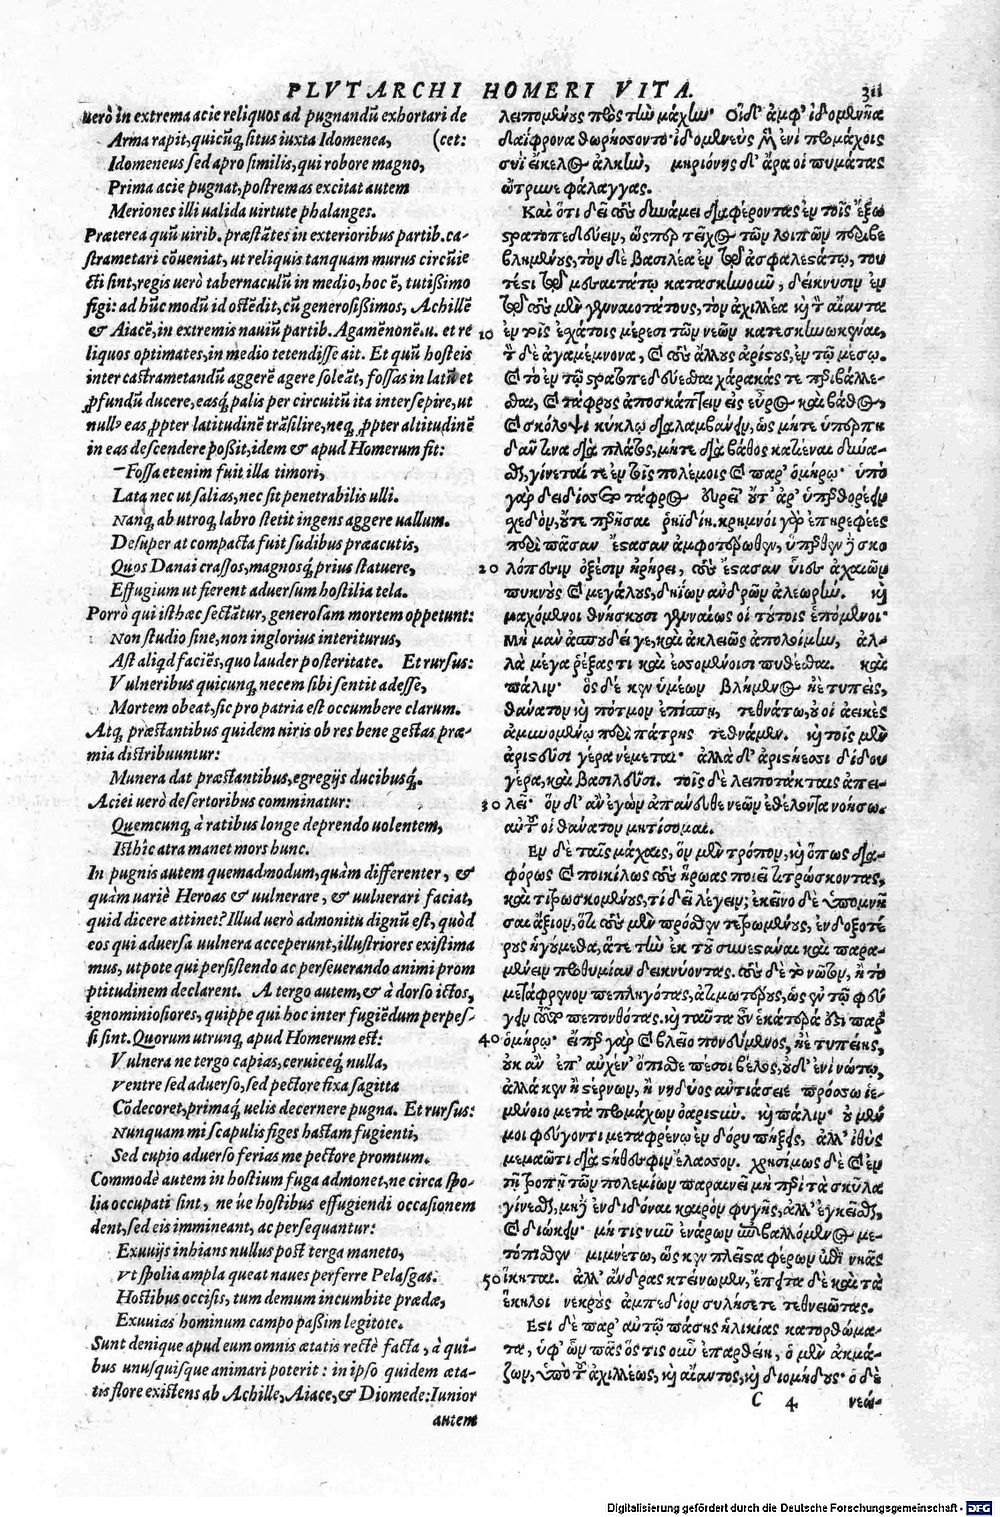 PLVTARCHI HOMERI VITA.
311
uerò in extrema acie reliquos ad pugnandũ exhortari de
Arma rapit, quicũq; situs iuxta Idomenea, (cet:
Idomeneus sed apro similis, qui robore magno,
Prima acie pugnat, postremas excitat autem
Meriones illi ualida uirtute phalanges.
Præterea quũ uirib. præstãtes in exterioribus partib. ca-
strametari cõueniat, ut reliquis tanquam murus circũie
cti sint, regis uerò tabernaculũ in medio, hoc ẽ, tutissimo
figi: ad hũc modũ id ostẽdit, cũ generosissimos, Achillẽ
& Aiacẽ, in extremis nauiũ partib. Agamẽnonẽ.u. et re
liquos optimates, in medio tetendisse ait. Et quũ hosteis
inter castrametandũ aggerẽ agere soleãt, fossas in latũ et
ꝓfundũ ducere, easq; palis per circuitũ ita intersepire, ut
nullꝰ eas ꝓpter latitudinẽ trãsilire, neq; ꝓpter altitudinẽ
in eas descendere poßit, idem & apud Homerum fit:
Fossa etenim fuit illa timori,
Lata nec ut salias, nec sit penetrabilis ulli.
Nanq; ab utroq; labro stetit ingens aggere uallum.
Desuper at compacta fuit sudibus præacutis,
Quos Danai crassos, magnosq́; prius statuere,
Effugium ut fierent aduersum hostilia tela.
Porrò qui isthæc sectãtur, generosam mortem oppetunt:
Non studio sine, non inglorius interiturus,
Ast aliqd faciẽs, quo lauder posteritate. Et rursus:
Vulneribus quicunq; necem sibi sentit adesse,
Mortem obeat, sic pro patria est occumbere clarum.
Atq; præstantibus quidem uiris ob res bene gestas præ-
mia distribuuntur:
Munera dat præstantibus, egregijs ducibusq́;.
Aciei uerò desertoribus comminatur:
Quemcunq; à ratibus longe deprendo uolentem,
Isthîc atra manet mors hunc.
In pugnis autem quemadmodum, quàm differenter, &
quàm uariè Heroas & uulnerare, & uulnerari faciat,
quid dicere attinet? Illud uerò admonitu dignũ est, quòd
eos qui aduersa uulnera acceperunt, illustriores existima
mus, utpote qui persistendo ac perseuerando animi prom
ptitudinem declarent. A tergo autem, & à dorso ictos,
ignominiosiores, quippe qui hoc inter fugiẽdum perpes-
si sint. Quorum utrunq; apud Homerum est:
Vulnera ne tergo capias, ceruiceq́; nulla,
Ventre sed aduerso, sed pectore fixa sagitta
Cõdecoret, primaq́; uelis decernere pugna. Et rursus:
Nunquam mi scapulis figes hastam fugienti,
Sed cupio aduerso ferias me pectore promtum.
Commodè autem in hostium fuga admonet, ne circa spo-
lia occupati sint, ne úe hostibus effugiendi occasionem
dent, sed eis immineant, ac persequantur:
Exuuijs inhians nullus post terga maneto,
Vt spolia ampla queat naues perferre Pelasgas.
Hostibus occisis, tum demum incumbite prædæ,
Exuuias hominum campo paßim legitote.
Sunt denique apud eum omnis ætatis rectè facta, à qui-
bus unusquisque animari poterit: in ipso quidem æta-
tis flore existens ab Achille, Aiace, & Diomede: Iunior
autem
λειπομένους πρὸς τὴν μάχην· Οἱ δ' ἀμφ' ἰδομενῆα
δαΐφρονα θωρήσοντο· ἰδομενεὺς μὲν ἐνὶ προμάχοις
συῒ εἴκελος ἀλκὴν, μηριόνης δ' ἄρα οἱ πυμάτας
ὤτρυνε φάλαγγας.
Καὶ ὅτι δεῖ τοὺς δυνάμει διαφέροντας ἐν τοῖς ἔξω
στρατοπεδεύειν, ὥσπερ τεῖχος τῶν λοιπῶν περιβε
βλημένους, τὸν δὲ βασιλέα ἐν τῷ ἀσφαλεστάτῳ, του
τέστι τῷ μεσαιτάτῳ κατασκηνοῦν, δείκνυσιν ἐν
τῷ τοὺς μὲν γενναιοτάτους, τὸν ἀχιλλέα καὶ τὸν αἴαντα
10 ἐν τοῖς ἐσχάτοις μέρεσι τῶν νεῶν κατεσκηνωκέναι,
τὸν δὲ ἀγαμέμνονα, καὶ τοὺς ἄλλους ἀρίστους, ἐν τῷ μέσῳ.
καὶ τὸ ἐν τῷ στρατοπεδεύεσθαι χάρακάς τε περιβάλλε-
σθαι, καὶ τάφρους ἀποσκάπτειν εἰς εὖρος καὶ βάθος,
καὶ σκόλοψι κύκλῳ διαλαμβάνειν, ὡς μήτε ὑπερπη
δᾶν τινα διὰ πλάτος, μήτε διὰ βάθος κατιέναι δύνα-
σθαι, γίνεται τε ἐν τοῖς πολέμοις καὶ παρ' ὁμήρῳ· ὑπὸ
γὰρ δειδίσσετο τάφρος εὐρεῖ' οὔτ' ἀρ' ὑπερθορέειν
σχεδὸν, οὔτε περῆσαι ῥηϊδίη. κρημνοὶ γὰρ ἐπηρεφέες
περὶ πᾶσαν ἕστασαν ἀμφοτέρωθεν, ὕπερθεν δὲ σκο
20 λόπεσιν ὀξέσιν ἠρήρει, τοὺς ἔστασαν υἷες ἀχαιῶν
πυκνοὺς καὶ μεγάλους, δηΐων ἀνδρῶν ἀλεωρήν. καὶ
μαχόμενοι θνήσκουσι γενναίως οἱ τούτοις ἑπόμενοι·
Μὴ μὰν ἀσπουδεί γε, καὶ ἀκλειῶς ἀπολοίμην, ἀλ-
λὰ μέγα ῥέξας τι καὶ ἐσσομένοισι πυθέσθαι. καὶ
πάλιν· ὃς δέ κεν ὑμέων βλήμενος ἠὲ τυπεὶς,
θάνατον καὶ πότμον ἐπίσπῃ, τεθνάτω, οὔ οἱ ἀεικὲς
ἀμυνομένῳ περὶ πάτρης τεθνάμεν. καὶ τοῖς μὲν
ἀριστεῦσι γέρα νέμεται· ἀλλὰ δ' ἀριστήεσσι δίδου
γέρα, καὶ βασιλεῦσι. τοῖς δὲ λειποτάκταις ἀπει-
30 λεῖ· ὃν δ' ἂν ἐγὼν ἀπάνευθε νεῶν ἐθέλοντα νοήσω.
αὐτοῦ οἱ θάνατον μητίσομαι.
Ἐν δὲ ταῖς μάχαις, ὃν μὲν τρόπον, καὶ ὅπως δια-
φόρως καὶ ποικίλως τοὺς ἥρωας ποιεῖ τιτρώσκοντας,
καὶ τιτρωσκομένους, τί δεῖ λέγειν; ἐκεῖνο δὲ ὑπομνῆ
σαι ἄξιον, ὅτι τοὺς μὲν πρόσθεν τετρωμένους, ἐνδοξοτέ
ρους ἡγούμεθα, ἅτε τὴν ἐκ τοῦ συνεστάναι καὶ παρα-
μένειν προθυμίαν δεικνύοντας. τοὺς δὲ τὸ νῶτον, ἢ τὸ
μετάφρενον πεπληγότας, ἀτιμωτέρους, ὡς ἐν τῷ φεύ
γειν τοῦτο πεπονθότας. καὶ ταῦτα οὖν ἑκάτερά ἐστι παρ'
40 ὁμήρῳ· εἴπερ γάρ κε βλεῖο πονεύμενος, ἠὲ τυπείης,
οὐκ ἂν ἐπ' αὐχέν' ὄπισθε πέσοι βέλος, οὐδ' ἐνὶ νώτῳ,
ἀλλά κεν ἢ στέρνων, ἢ νηδύος ἀντιάσειε πρόσσω ἱε-
μένοιο μετὰ προμάχων ὀαριστύν. καὶ πάλιν· οὐ μέν
μοι φεύγοντι μεταφρένῳ ἐν δόρυ πήξεις, ἀλλ' ἰθὺς
μεμαῶτι διὰ στήθεσφιν ἔλασσον. χρησίμως δὲ καὶ ἐν
τῇ τροπῇ τῶν πολεμίων παραινεῖ μὴ περὶ τὰ σκῦλα
γίνεσθαι, μηδ' ἐνδιδόναι καιρὸν φυγῆς, ἀλλ' ἐγκεῖσθαι,
καὶ διώκειν· μή τις νῦν ἐνάρων ἐπιβαλλόμενος με-
τόπισθεν μιμνέτω, ὥς κεν πλεῖστα φέρων ἐπὶ νῆας
50 ἵκηται. ἀλλ' ἄνδρας κτείνωμεν, ἔπειτα δὲ καὶ τὰ
ἕκηλοι νεκροὺς ἀμπεδίον συλήσετε τεθνειῶτας.
Ἔστι δὲ παρ' αὐτῷ πάσης ἡλικίας κατορθώμα-
τα, ὑφ' ὧν πᾶς ὅστις οὖν ἐπαρθείη, ὁ μὲν ἀκμά-
ζων, ὑπὸ τοῦ ἀχιλλέως, καὶ αἴαντος, καὶ διομήδους· ὁ δὲ
C 4 νεώ-
Digitalisierung gefördert durch die Deutsche Forschungsgemeinschaft - DFG